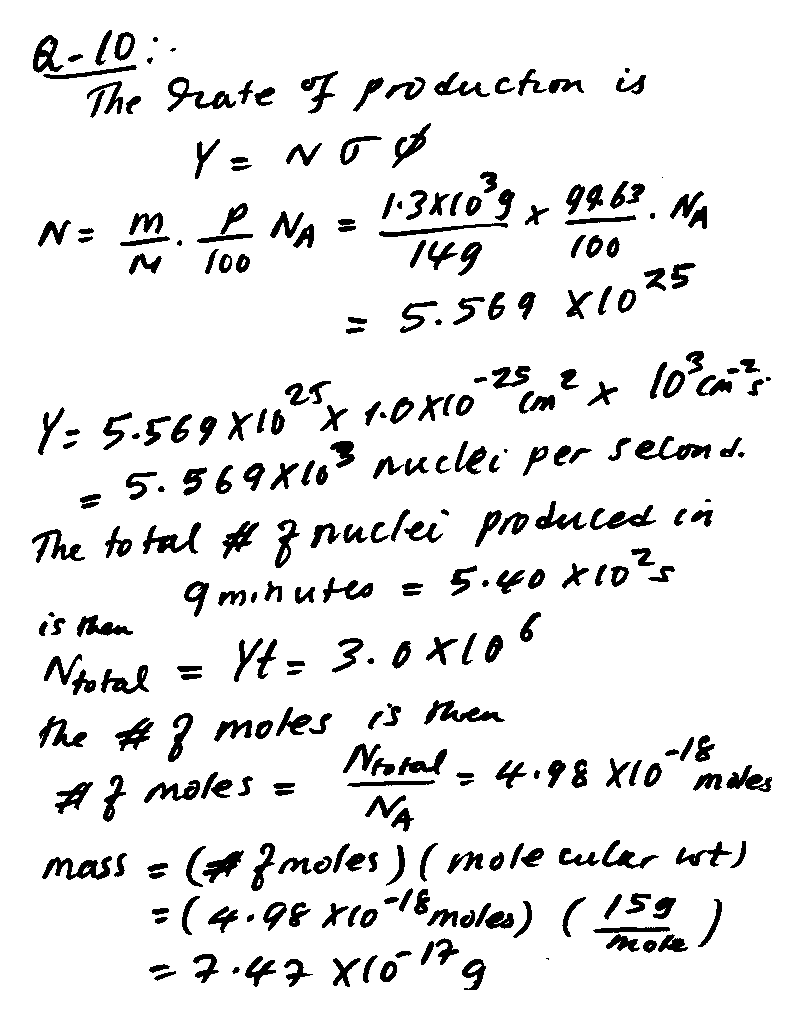 Q-10:-
The rate of production is
Y = N σ ϕ
N = m/M · P/100 N_A = 1.3X10³g/14g x 99.63/100 · N_A
= 5.569 X10²⁵
Y = 5.569 X10²⁵ x 1.0X10⁻²⁵ cm² x 10³ cm⁻² s.
= 5.569X10³ nuclei per second.
The total # of nuclei produced in
9 minutes = 5.40 X10²s
is then
N_total = Yt = 3.0 X10⁶
the # of moles is then
# of moles = N_total/N_A = 4.98 X10⁻¹⁸ moles
mass = (# of moles) (molecular wt)
= (4.98 X10⁻¹⁸ moles) (15g/mole)
= 7.47 X10⁻¹⁷ g